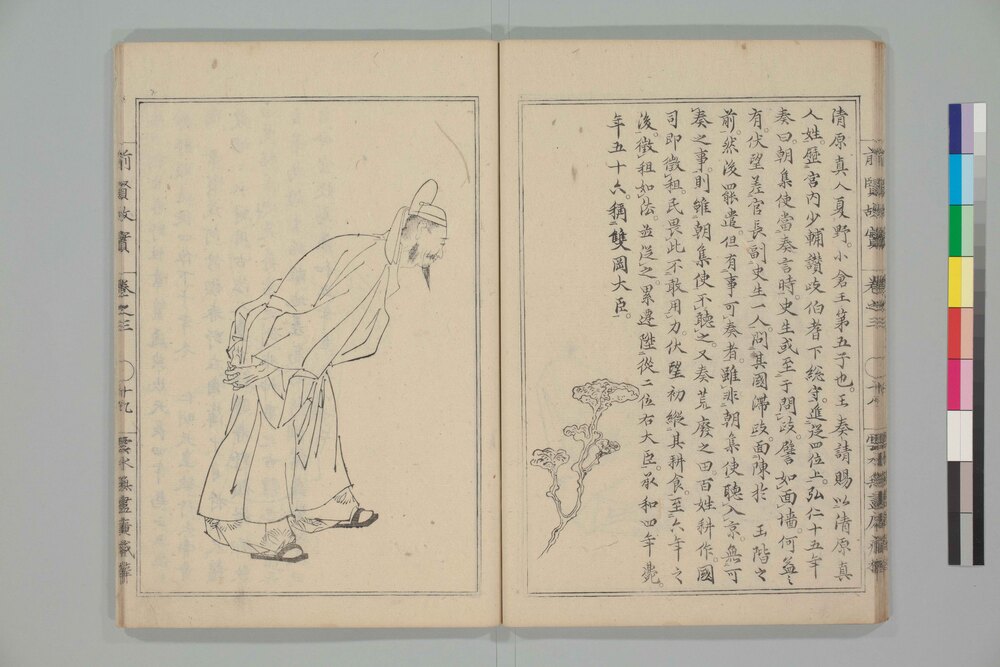 清原真人夏野。小倉王第五子也。王奏請賜以清原真
人姓。歷宮内少輔讃岐伯耆下総守。進從四位上。弘仁十五年
奏曰。朝集使當奏言時。史生或至于問歧。譬如面墻。何益之
有。伏望差官長副史生一人。問其國滯歧。面陳於 玉階之
前。然後罷遣。但有事可奏者。雖非朝集使聽入京。無可
奏之事。則雖朝集使不聽之。又奏荒廢之田百姓耕作。國
司即徵租。民畏此不敢用力。伏望初縱其耕食。至六年之
後。徵租如法。並從之。累遷陞從二位右大臣。承和四年薨。
年五十六。稱雙岡大臣。
前賢故實 卷之三
前賢故實 卷之三 十九 雲水無盡庵藏